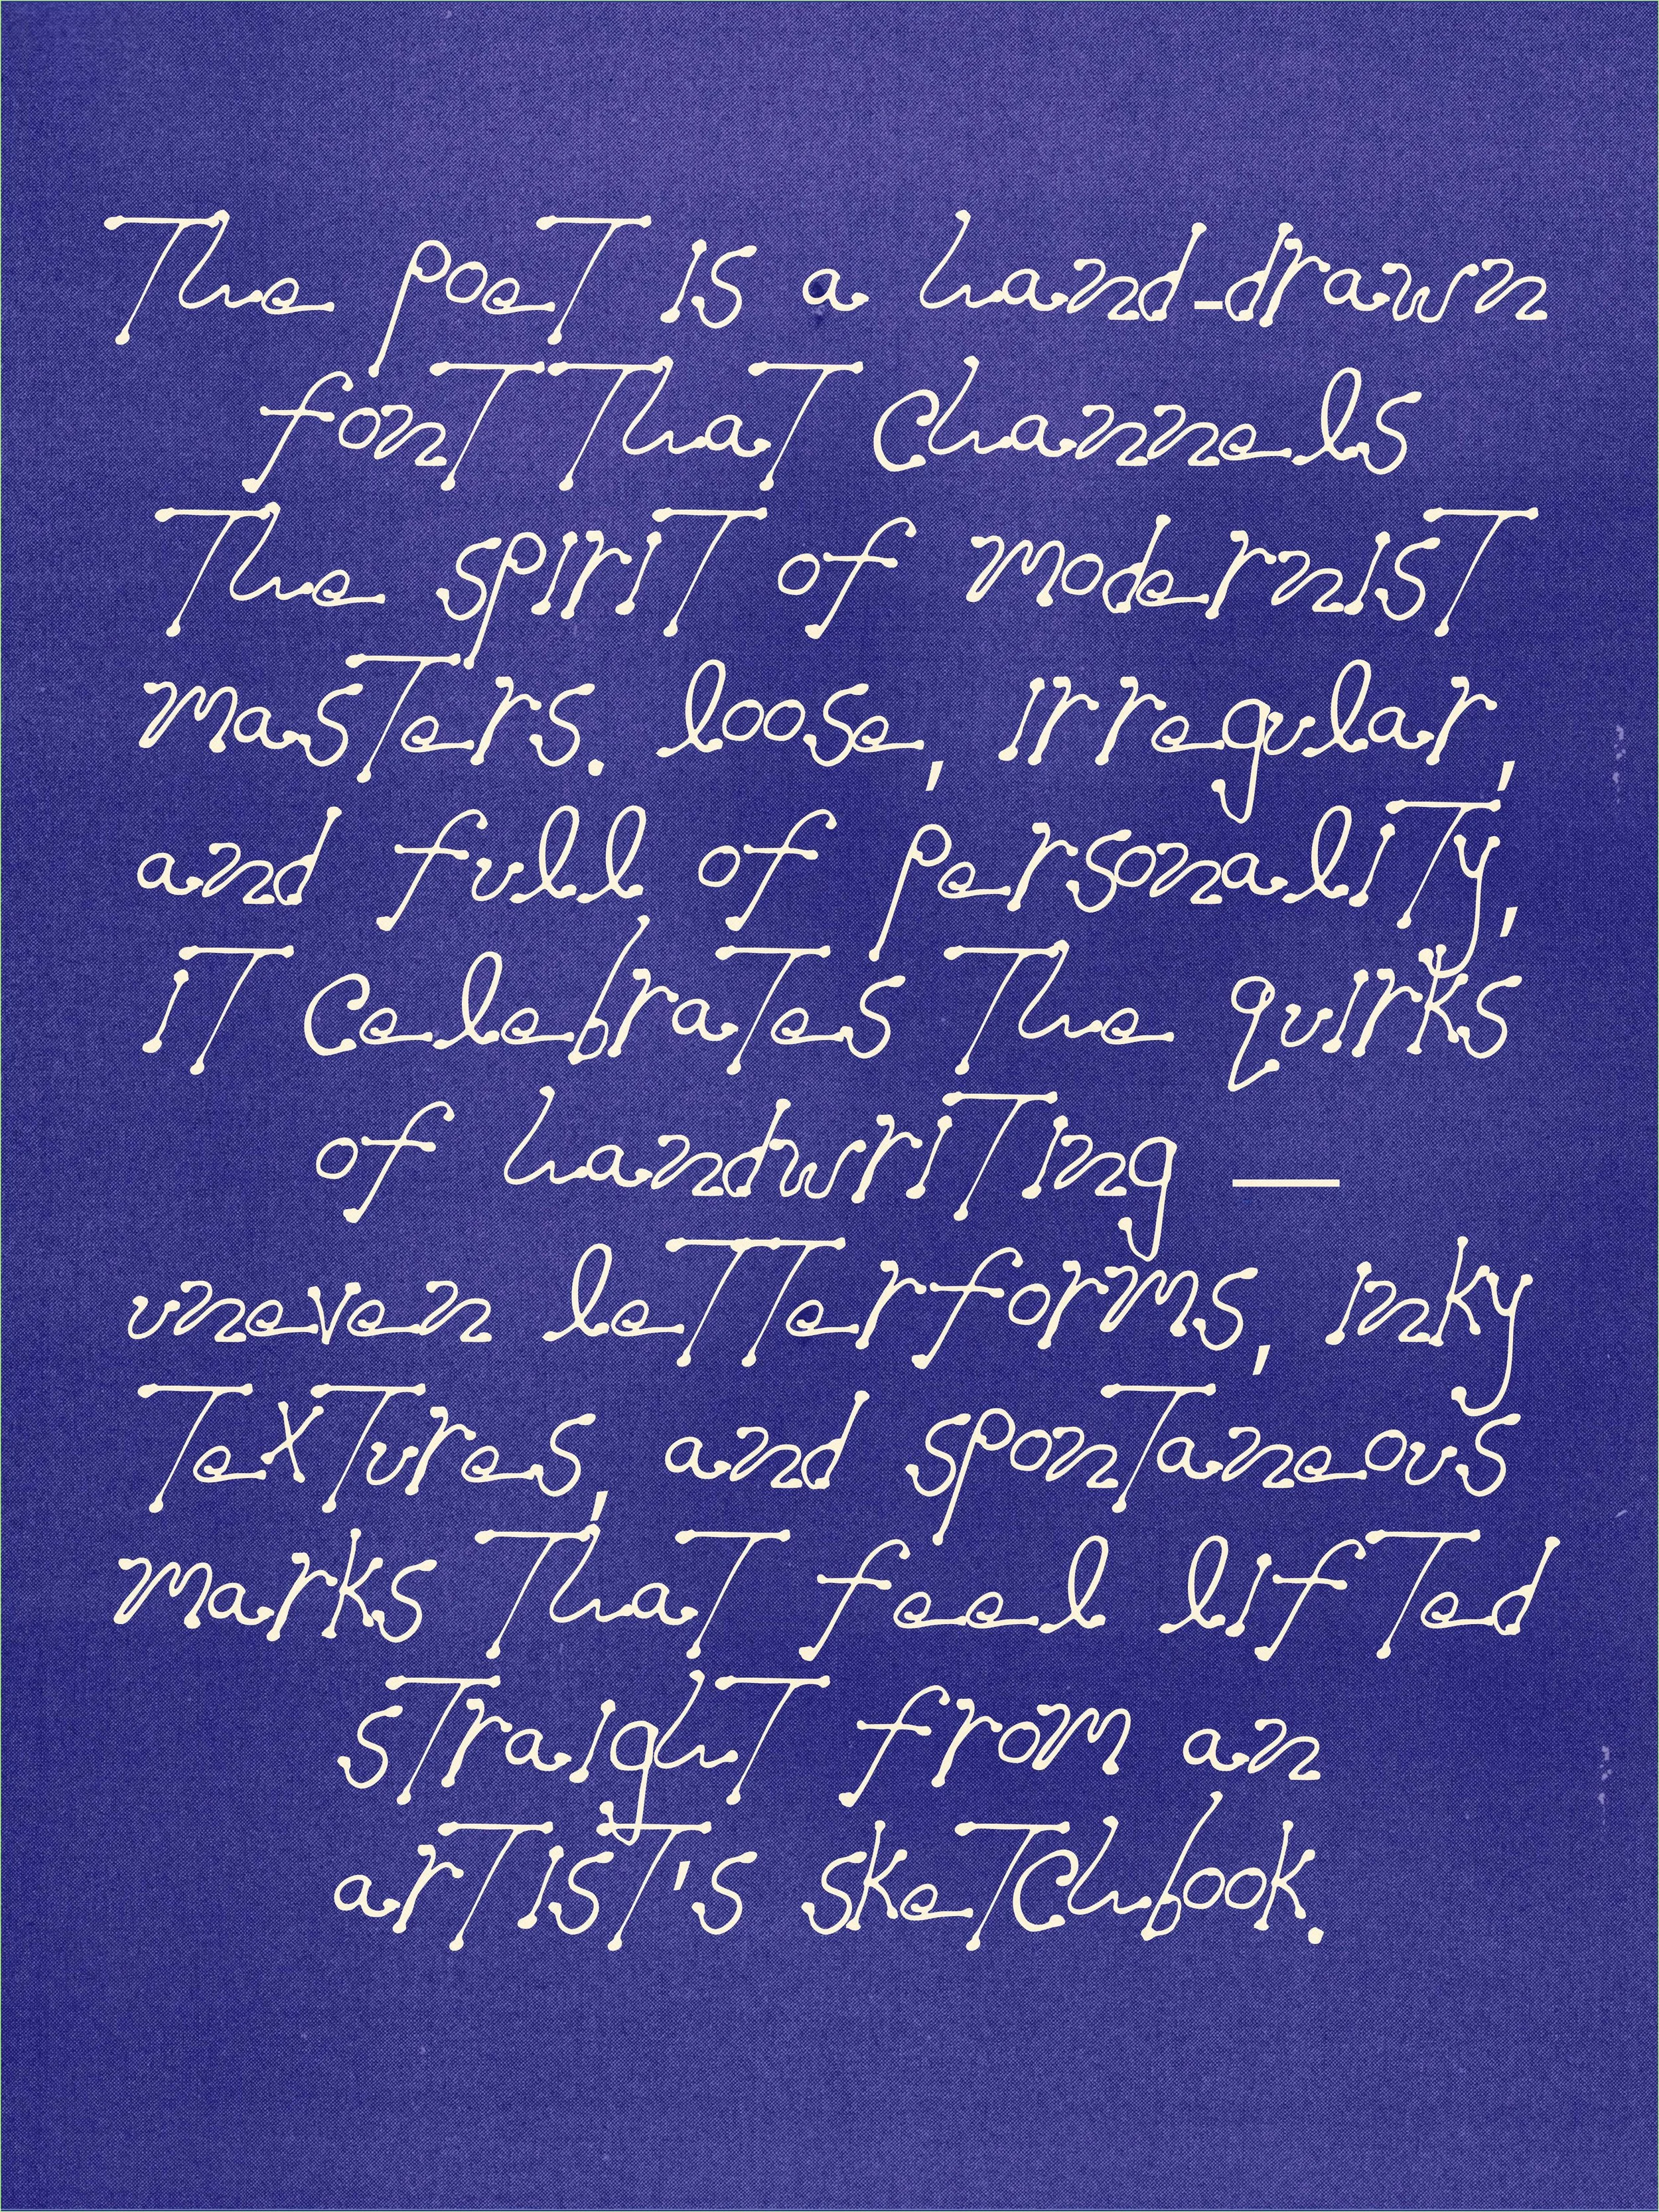 The poet is a hand-drawn
font that channels
the spirit of modernist
masters. loose, irregular,
and full of personality,
it celebrates the quirks
of handwriting —
uneven letterforms, inky
textures, and spontaneous
marks that feel lifted
straight from an
artist's sketchbook.